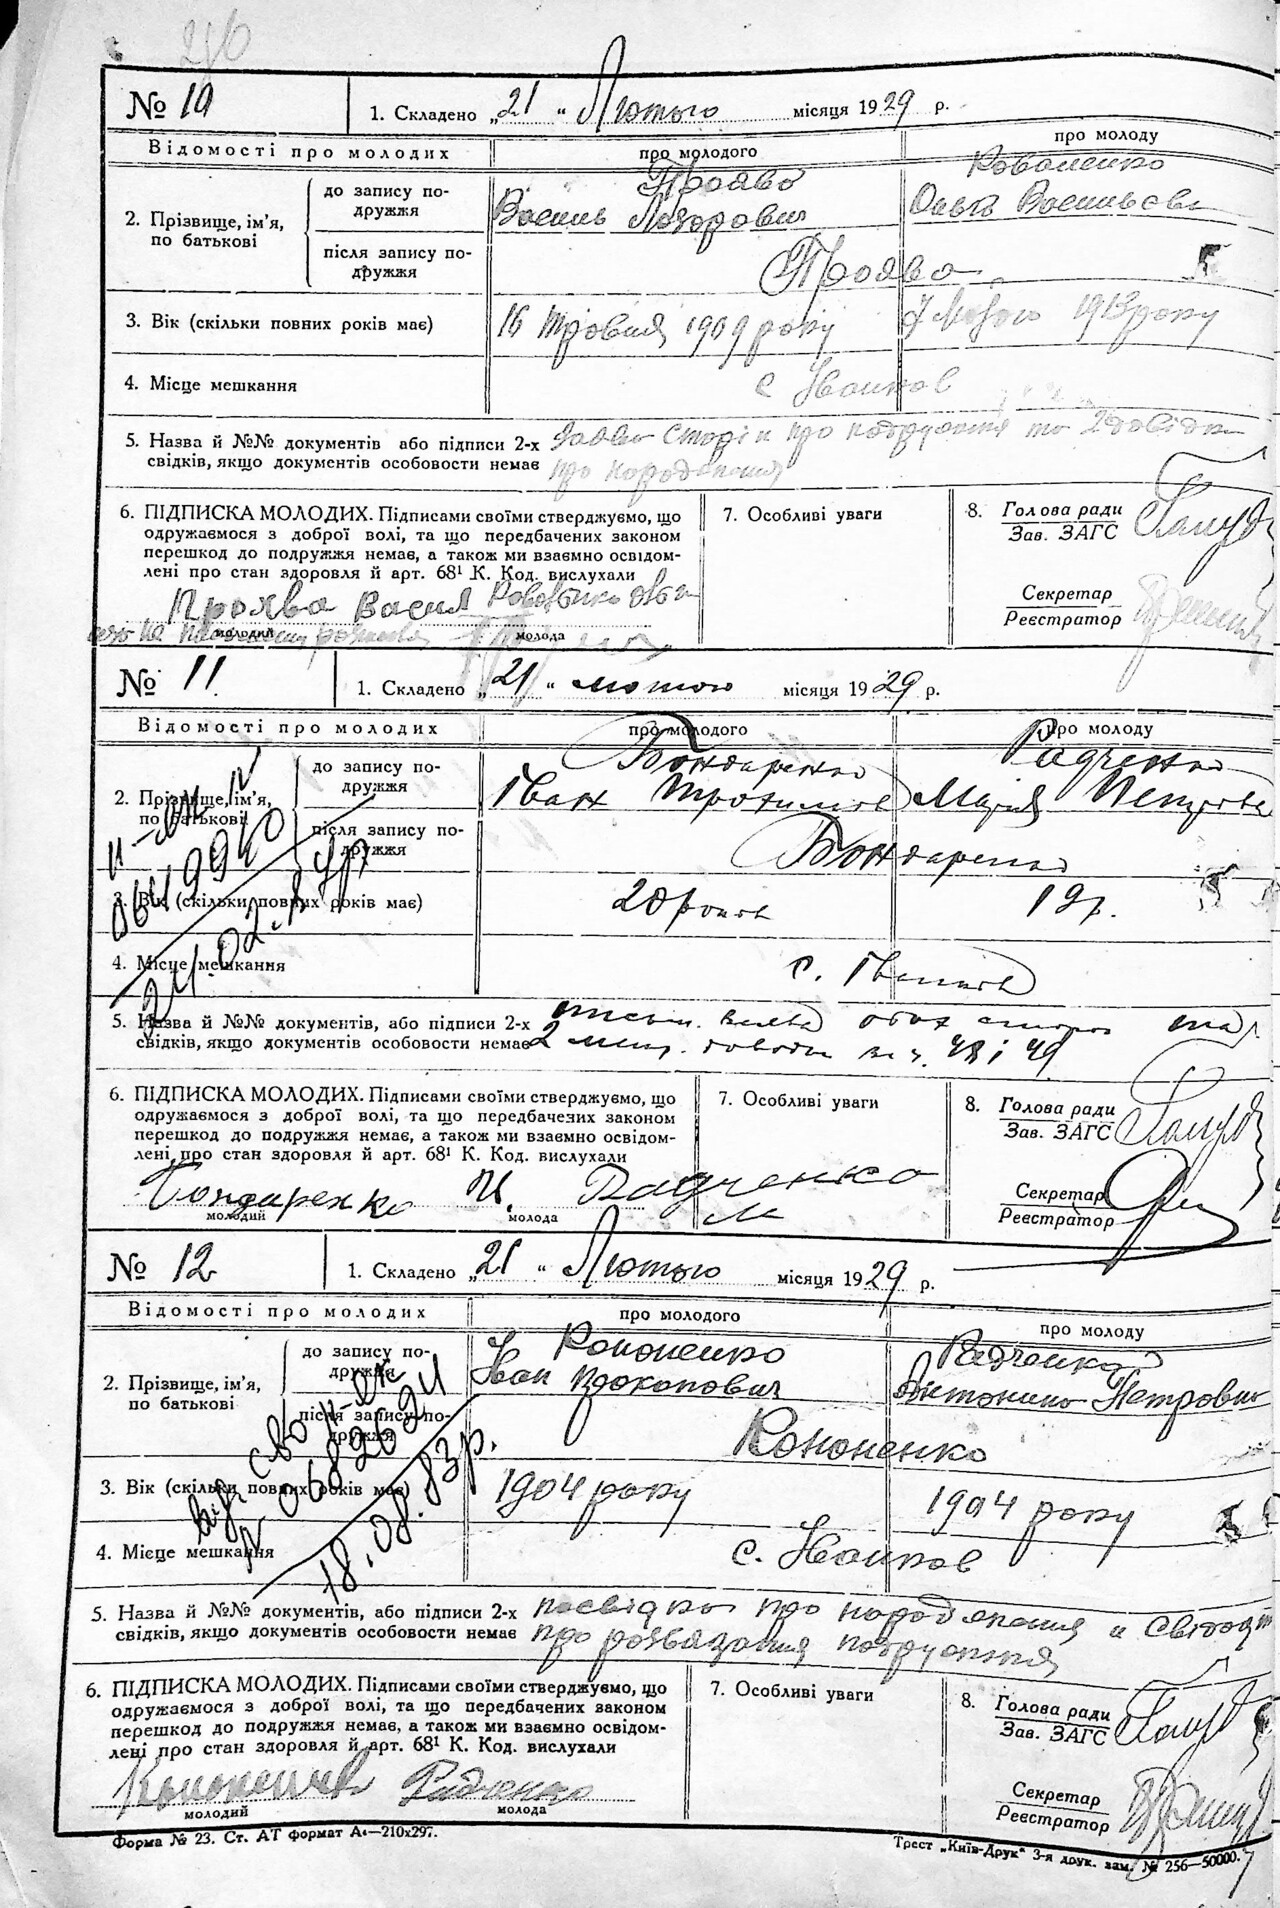 № 10 1. Складено „21“ Лютого місяця 1929 р.
Відомості про молодих про молодого про молоду
2. Прізвище, ім’я, по батькові
до запису подружжя
Проява Коваленко
Василь Лазорович Ольга Васильєвн
після запису подружжя
Проява
3. Вік (скільки повних років має) 16 травня 1909 року 7 1913 року
4. Місце мешкання с Іванков
5. Назва й №№ документів або підписи 2-х про подружжя та 2
свідків, якщо документів особовости немає про народження
6. ПІДПИСКА МОЛОДИХ. Підписами своїми стверджуємо, що 7. Особливі уваги 8. Голова ради
одружаємося з доброї волі, та що передбачених законом Зав. ЗАГС
перешкод до подружжя немає, а також ми взаємно освідом-
лені про стан здоровля й арт. 68¹ К. Код. вислухали Секретар
Проява Васил Реєстратор
молодий молода
№ 11 1. Складено „21“ лютого місяця 1929 р.
Відомості про молодих про молодого про молоду
2. Прізвище, ім’я, по батькові
до запису подружжя
Бондаренко Радченко
Іван Трохимов Марія Петрівна
після запису подружжя
Бондаренко
3. Вік (скільки повних років має) 20 років 19 р.
4. Місце мешкання с. Іванків
24.02.
5. Назва й №№ документів, або підписи 2-х обох сторон та
свідків, якщо документів особовости немає 2 48 і 49
6. ПІДПИСКА МОЛОДИХ. Підписами своїми стверджуємо, що 7. Особливі уваги 8. Голова ради
одружаємося з доброї волі, та що передбачених законом Зав. ЗАГС
перешкод до подружжя немає, а також ми взаємно освідом-
лені про стан здоровля й арт. 68¹ К. Код. вислухали Секретар
Бондаренко И. Радченко М Реєстратор
молодий молода
№ 12 1. Складено „21“ Лютого місяця 1929 р.
Відомості про молодих про молодого про молоду
2. Прізвище, ім’я, по батькові
до запису подружжя
Кононенко Радченко
Іван Прокопович Антонина Петровна
після запису подружжя
Кононенко
3. Вік (скільки повних років має) 1904 року 1904 року
4. Місце мешкання с. Іванков
18.08.83р.
5. Назва й №№ документів, або підписи 2-х посвідки про народження и
свідків, якщо документів особовости немає про розвязання подружжя
6. ПІДПИСКА МОЛОДИХ. Підписами своїми стверджуємо, що 7. Особливі уваги 8. Голова ради
одружаємося з доброї волі, та що передбачених законом Зав. ЗАГС
перешкод до подружжя немає, а також ми взаємно освідом-
лені про стан здоровля й арт. 68¹ К. Код. вислухали Секретар
Кононенко Радченко Реєстратор
молодий молода
Форма № 23. Ст. АТ формат А₄—210х297. Трест „Київ-Друк“ 3-я друк. зам. № 256—50000.